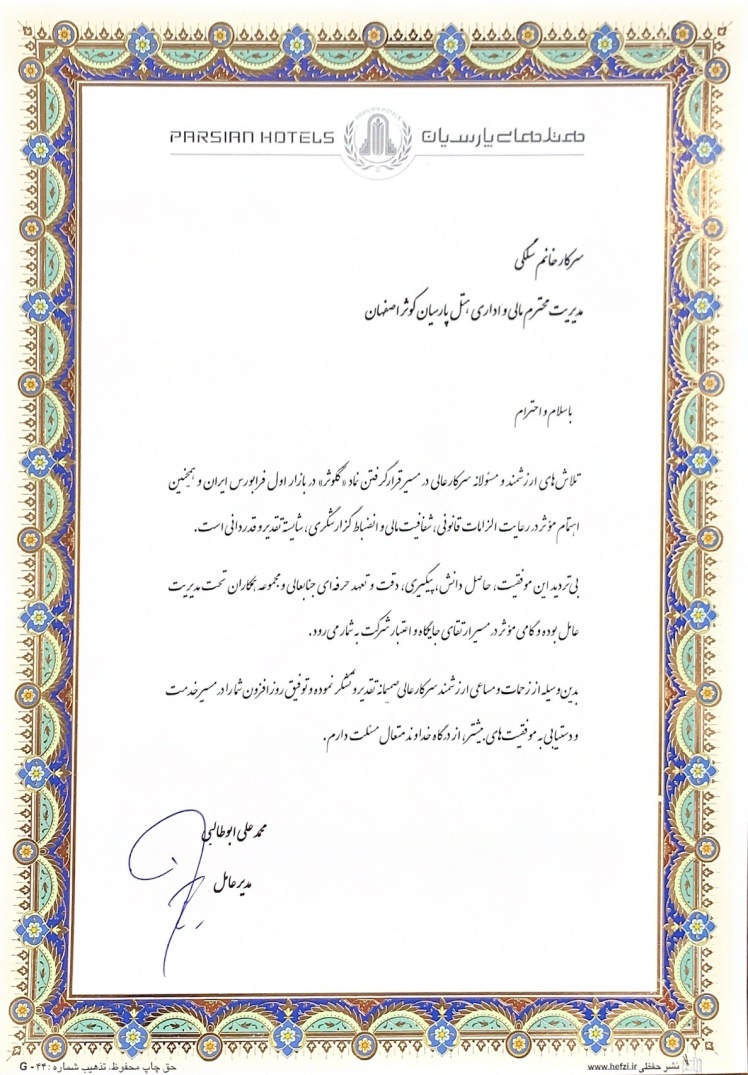 PARSIAN HOTELS
هتلهای پارسیان
سرکار خانم سلکی
مدیریت محترم مالی و اداری هتل پارسیان کوثر اصفهان
باسلام و احترام
تلاش‌های ارزشمند و مسئولانه سرکارعالی در مسیر قرارگرفتن نماد «گکوثر» در بازار اول فرابورس ایران و همچنین
اهتمام مؤثر در رعایت الزامات قانونی، شفافیت مالی و انضباط گزارشگری، شایسته تقدیر و قدردانی است.
بی‌تردید این موفقیت، حاصل دانش، پیگیری، دقت و تعهد حرفه‌ای جنابعالی و مجموعه همکاران تحت مدیریت
عامل بوده و گامی مؤثر در مسیر ارتقای جایگاه و اعتبار شرکت به شمار می‌رود.
بدین وسیله از زحمات و مساعی ارزشمند سرکارعالی صمیمانه تقدیر و تشکر نموده و توفیق روزافزون شما را در مسیر خدمت
و دستیابی به موفقیت‌های بیشتر، از درگاه خداوند متعال مسئلت دارم.
محمد علی ابوطالبی
مدیرعامل
نشر حفظی www.hefzi.ir
حق چاپ محفوظ. تذهیب شماره: G - ۴۴